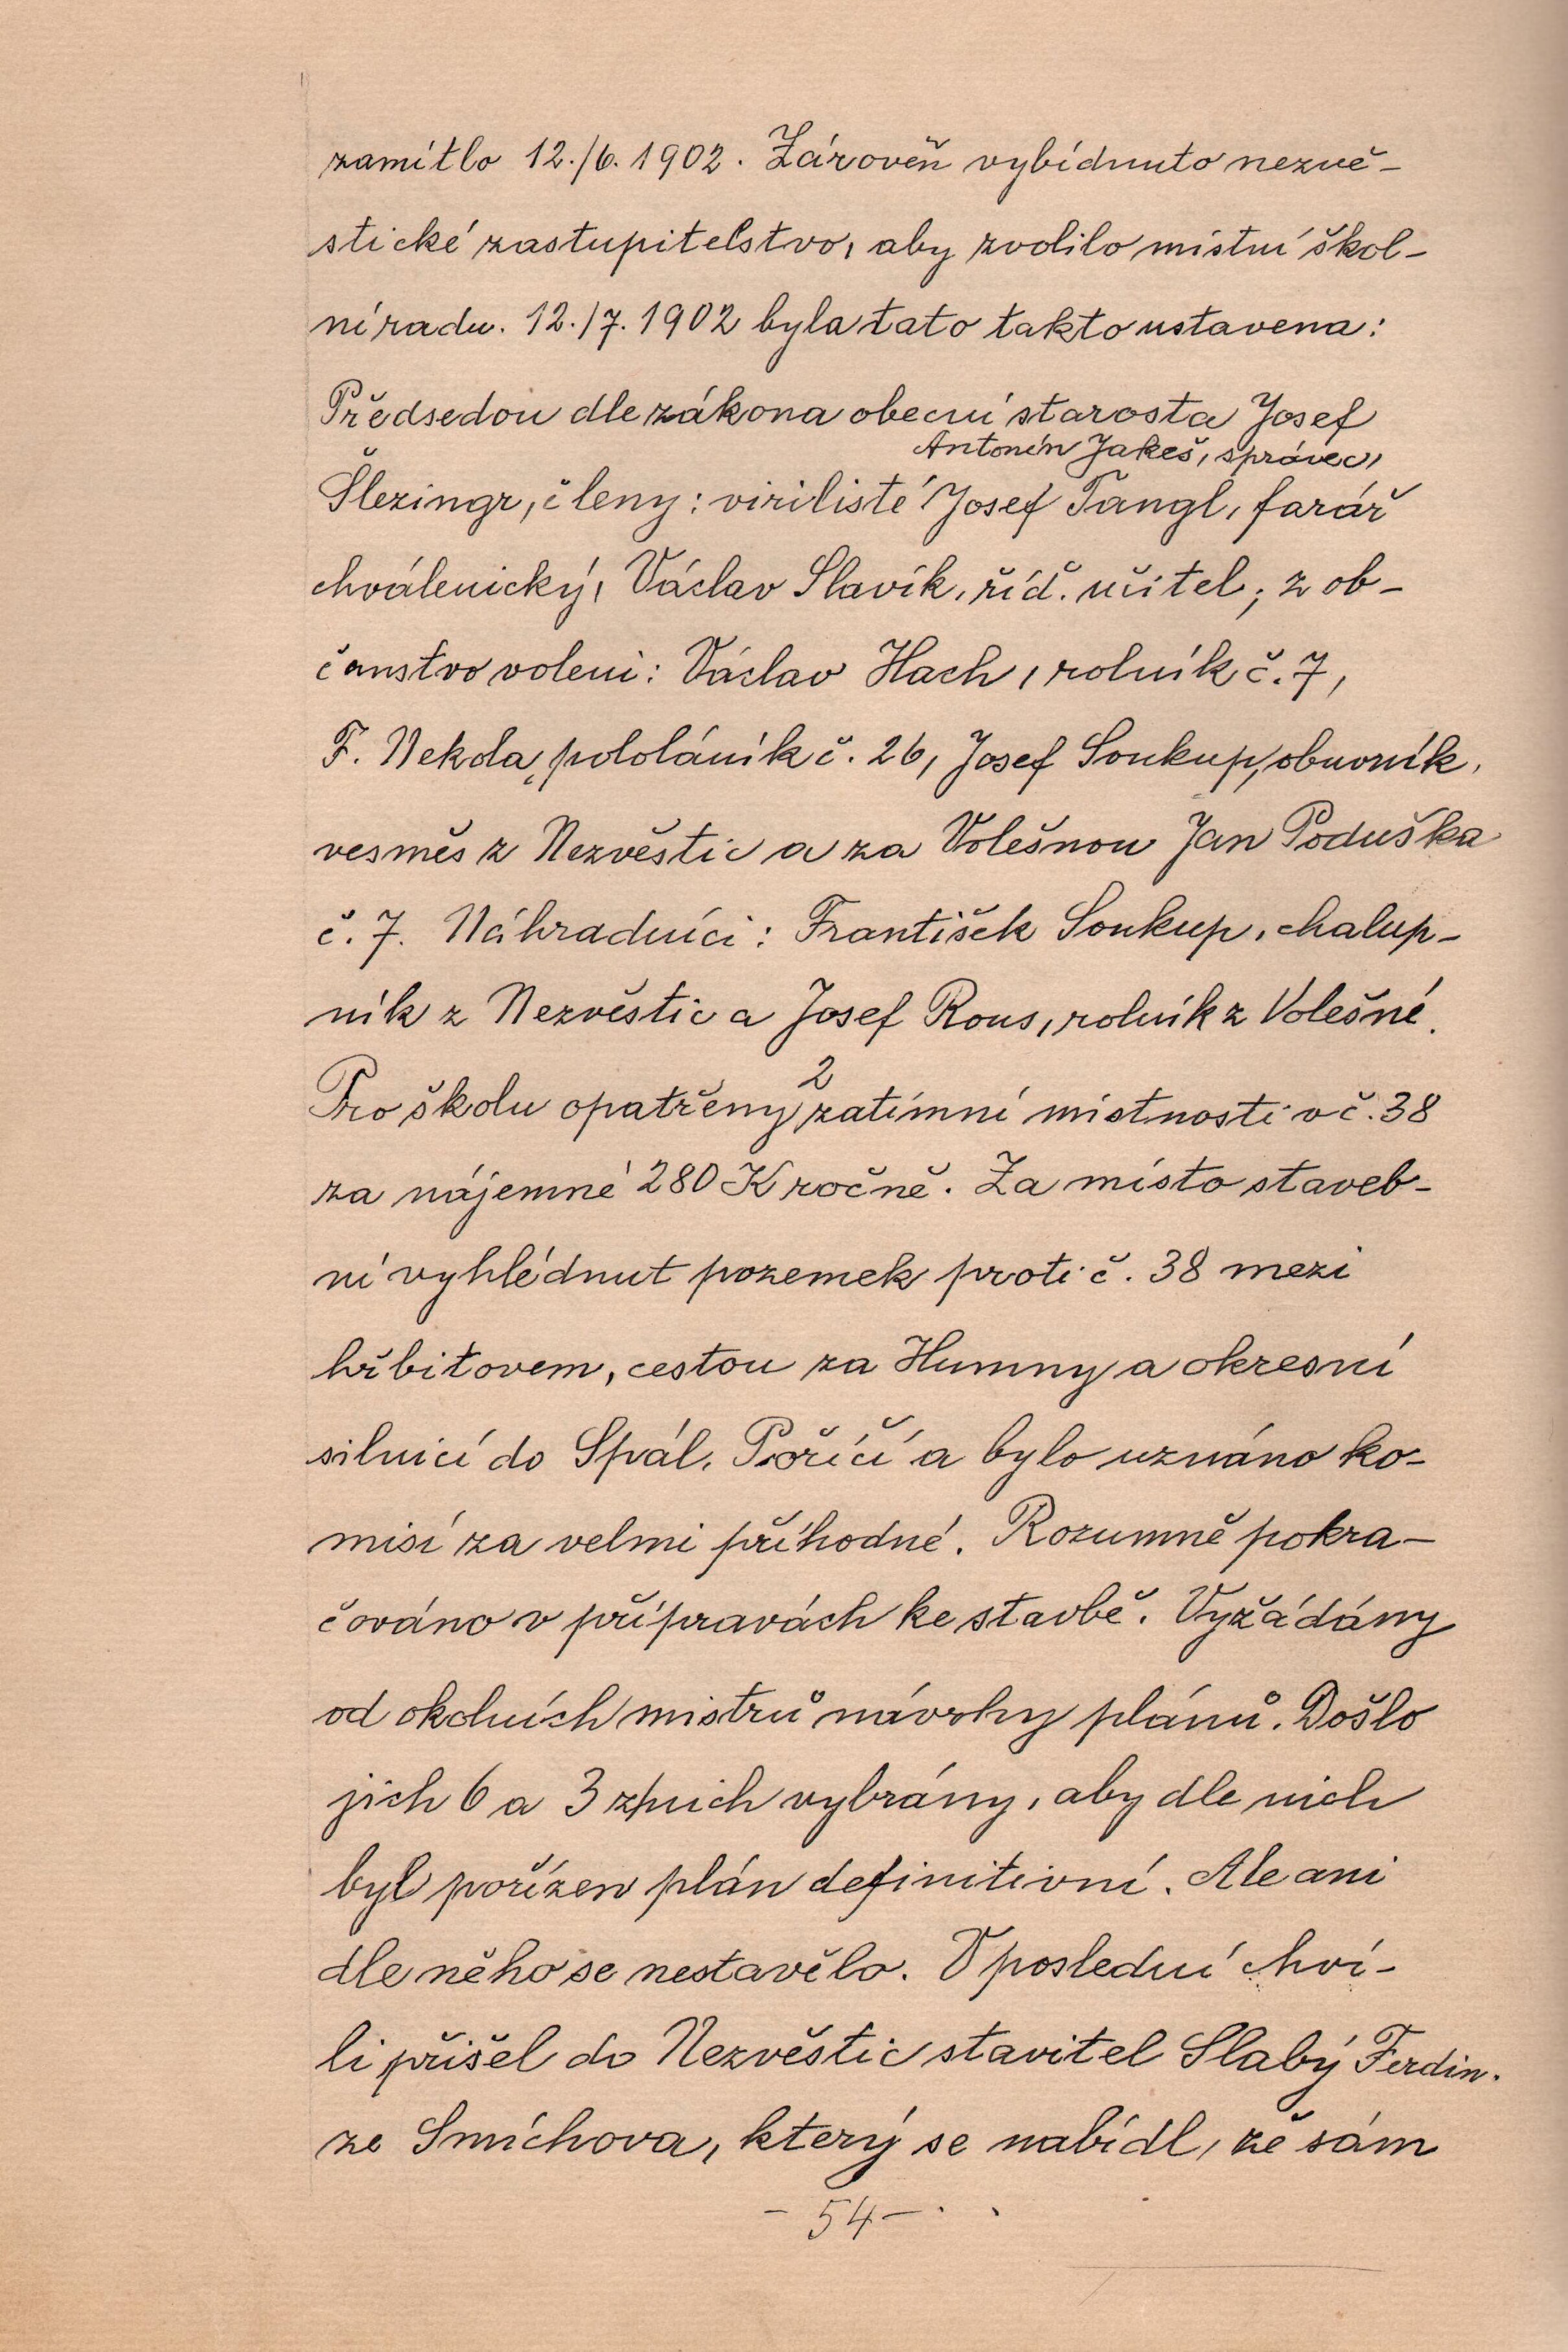 zamítlo 12./6. 1902. Zároveň vybídnuto nezvě-
stické zastupitelstvo, aby zvolilo místní škol-
ní radu. 12./7. 1902 byla tato takto ustavena:
Předsedou dle zákona obecní starosta Josef
Antonín Jakeš, správec,
Šlezingr, členy: virilisté Josef Tangl, farář
chválenický, Václav Slavík, říd. učitel; z ob-
čanstvo voleni: Václav Hach, rolník č. 7,
F. Nekola, pololáník č. 26, Josef Soukup, obuvník,
vesměs z Nezvěstic a za Volešnou Jan Poduška
č. 7. Náhradníci: František Soukup, chalup-
ník z Nezvěstic a Josef Rous, rolník z Volešné.
2
Pro školu opatřeny zatímní místnosti v č. 38
za nájemné 280 K ročně. Za místo staveb-
ní vyhlédnut pozemek proti č. 38 mezi
hřbitovem, cestou za Humny a okresní
silnicí do Spál. Poříčí a bylo uznáno ko-
misí za velmi příhodné. Rozumně pokra-
čováno v přípravách ke stavbě. Vyžádány
od okolních mistrů návrhy plánů. Došlo
jich 6 a 3 z nich vybrány, aby dle nich
byl pořízen plán definitivní. Ale ani
dle něho se nestavělo. V poslední chví-
li přišel do Nezvěstic stavitel Slabý Ferdin.
ze Smíchova, který se nabídl, že sám
- 54 -